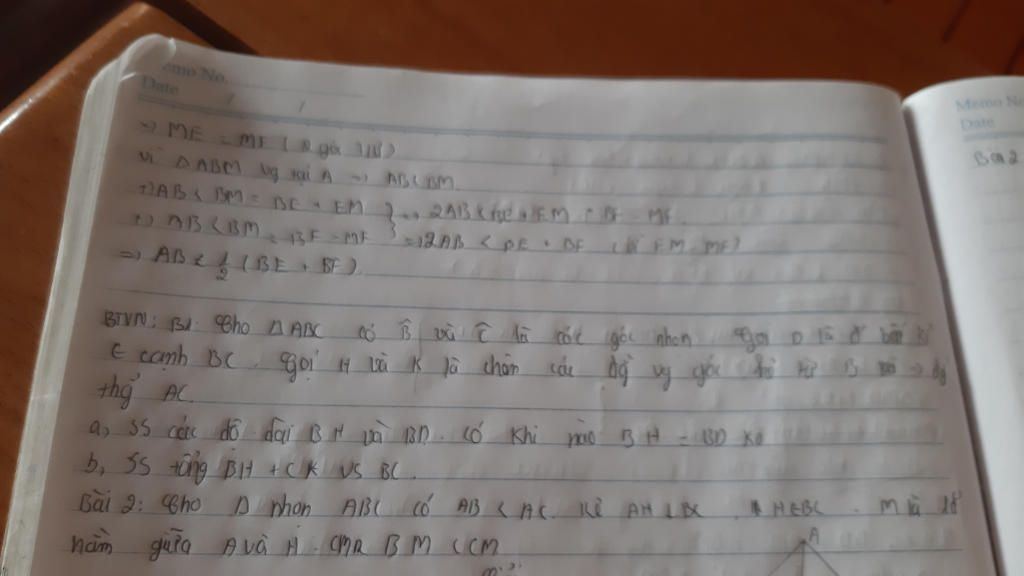 Memo No.
Date / /
=> ME = MF (2 góc
vì Δ ABM vg tại A => AB < BM
+) AB < BM = BE + EM } => 2AB < BE + EM + BF - MF
+) AB < BM = BF - MF => 2AB < BE + BF (vì EM = MF)
=> AB < 1/2 (BE + BF)
BTVN: B1: Cho Δ ABC có B̂ và Ĉ là các góc nhọn. Gọi D là
∈ cạnh BC. Gọi H và K là chân các đg vg góc kẻ từ B
thẳg AC
a, SS các độ dài BH và BD. có khi nào BH = BD ko
b, SS tổng BH + CK vs BC.
Bài 2: Cho Δ nhọn ABC có AB < AC. Kẻ AH ⊥ BC, H∈BC. M là 1đ
nằm giữa A và H. CMR BM < CM
A
Memo No
Date
Bài 2